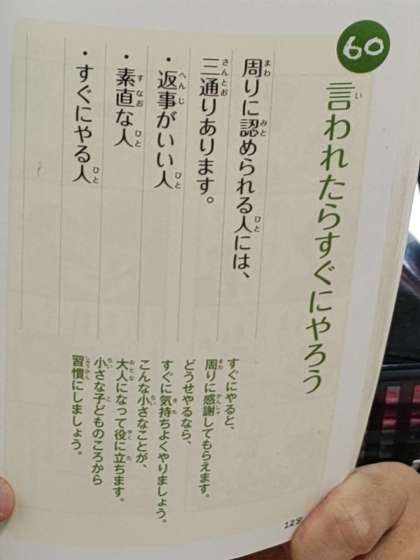 60
言われたらすぐにやろう
周りに認められる人には、
三通りあります。
・返事がいい人
・素直な人
・すぐにやる人
すぐにやると、
周りに感謝してもらえます。
どうせやるなら、
すぐに気持ちよくやりましょう。
こんな小さなことが、
大人になって役に立ちます。
小さな子どものころから
習慣にしましょう。
128